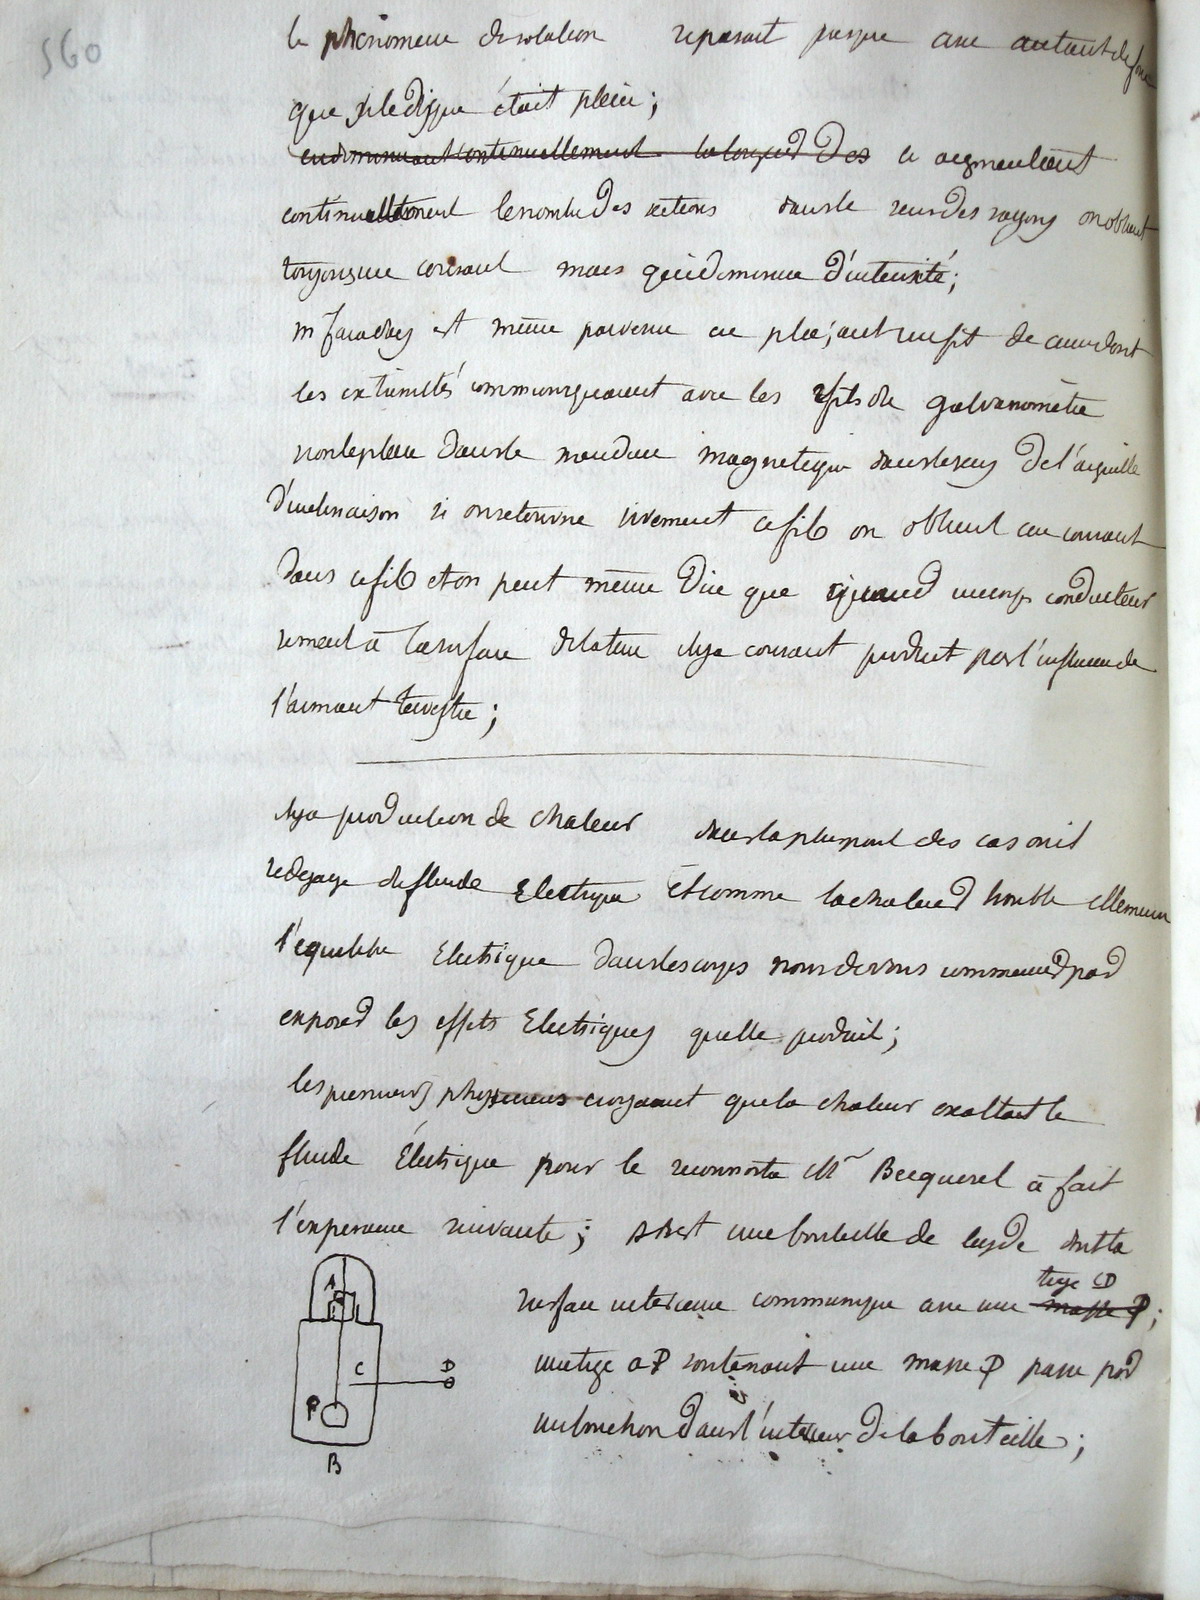 560
le phénomène de rotation reparait presque avec autant de force
que si le disque était plein;
en diminuant continuellement la longueur des en augmentant
continuellement le nombre des sections dans le sens des rayons on obtient
toujours un courant mais qui diminue d'intensité;
m faraday est même parvenu en plaçant un fil de cuivre dont
les extrémités communiquaient avec les 2 fils du galvanomètre
dans le méridien magnétique dans le sens de l'aiguille
d'inclinaison si on retourne vivement ce fil on obtient un courant
dans ce fil et on peut même dire que quand un corps conducteur
se meut à la surface de la terre il y a courant produit par l'influence de
l'aimant terrestre;
il y a production de chaleur dans la plupart des cas où il
se dégage du fluide électrique et comme la chaleur trouble elle meme
l'equilibre Electrique dans les corps nous devons commencer par
exposer les effets Electriques quelle produit;
les premiers physiciens croyaient que la chaleur exaltait le
fluide Électrique pour le reconnoitre Mr Becquerel à fait
l'experience suivante; soit une bouteille de leyde dont la
tige CD
surface interieure communique avec une masse P;
une tige a P soutenant une masse P passe par
un bouchon dans l'intérieur de la bouteille;
A
C
D
P
B